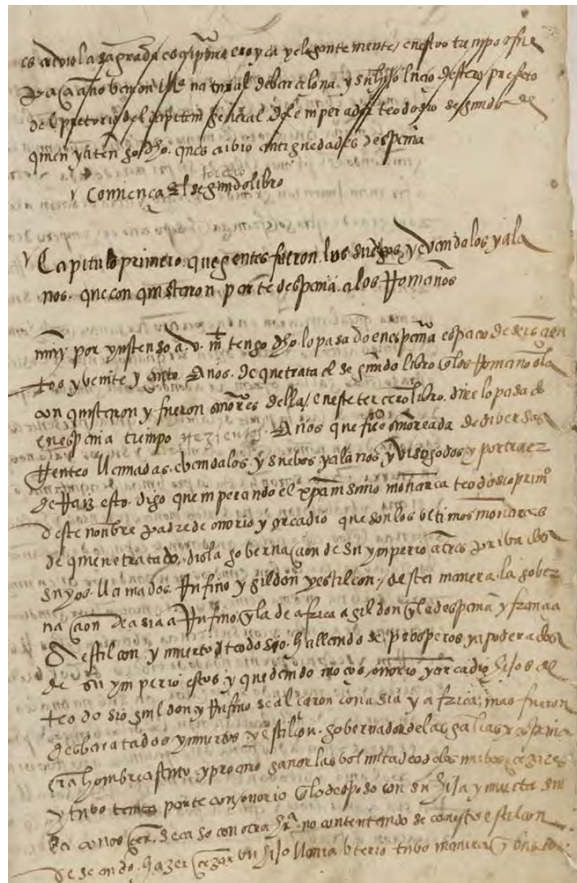 escrivio la sagrada escriptura eroyca y elegantemente, en estos tiempos fue
natural de barcelona. y su hijo lucio destro prefeto
del pretorio del general del emperador teodosio segundo de
quien ya tengo dho. que escribio antiguedades despaña
Comiença el segundo libro
tercero
Capitulo primero. que gentes fueron. los suebos, y vandalos y ala
nos. que conquistaron parte despaña. a los Romanos
muy por ystenso a. v. m. tengo dho lo pasado en españa espacio de seis çien
tos y veinte y años. de que trata el segundo libro q los Romanos la
conquistaron y fueron señores della, en este tercero libro. dire lo pasado
en españa tiempo años que fue señoreada de diversas
gentes llamadas. vandalos, y suebos y alanos, y visogodos y por traer
de Raiz esto. digo que imperando el xpianisimo monarca teodosio primo
deste nonbre padre de onorio y arcadio que son los ultimos monarcas
de quien e tratado, dio la gobernaçion de su ymperio a tres pribados
suyos. llamados Rufino y gildon y estilcon, de esta manera. la gober
naçion de asia a Rufino, y la de africa a gildon y la despaña y françia
a estilcon. y muerto teodosio. hallandose prosperos y apoderados
de su ymperio estos y quedando moços, onorio y arcadio hijos de
teodosio gildon y Rufino se alçaron con asia y africa, mas fueron
desbaratados y muertos y estilcon. gobernador de las galias y españa
era hombre astuto y procuro ganar las boluntades de los moços çesares
y tubo tanta parte con onorio q lo desposo con su hija y muerta
se caso con otra hra. no contentandose con esto estilcon
deseando. hazer çesar un hijo tubo manera